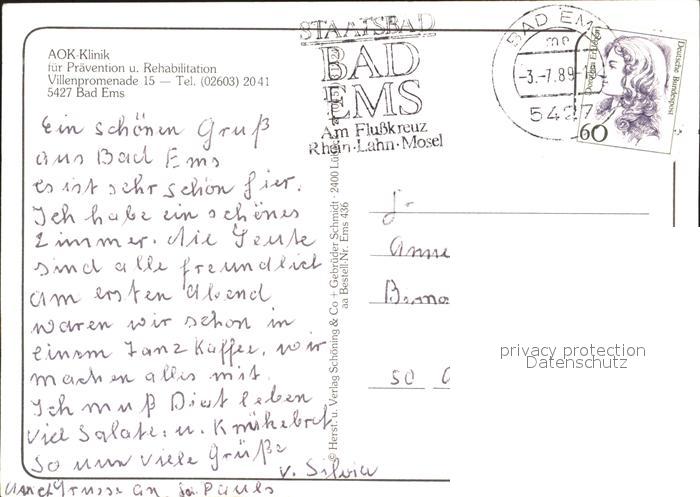 STAATSBAD
BAD
EMS
Am Flußkreuz
Rhein·Lahn·Mosel
BAD EMS
-3.-7.89-1
5427
Deutsche Bundespost
60
AOK-Klinik
für Prävention u. Rehabilitation
Villenpromenade 15 — Tel. (02603) 20 41
5427 Bad Ems
Ein schönen Gruß
aus Bad Ems
es ist sehr schön hier.
Ich habe ein schönes
Zimmer. die Leute
sind alle freundlich
Am ersten Abend
waren wir schon in
einem Tanz Kaffee, wir
machen alles mit.
Ich muß Diät leben
viel Salate: u. Knäkebrot
so nun viele Grüße
v. Silvia
auch Grüsse an Pauls
© Herst. u. Verlag Schöning & Co + Gebrüder Schmidt · 2400
aa Bestell-Nr. Ems 436
Anne
50
privacy protection
Datenschutz